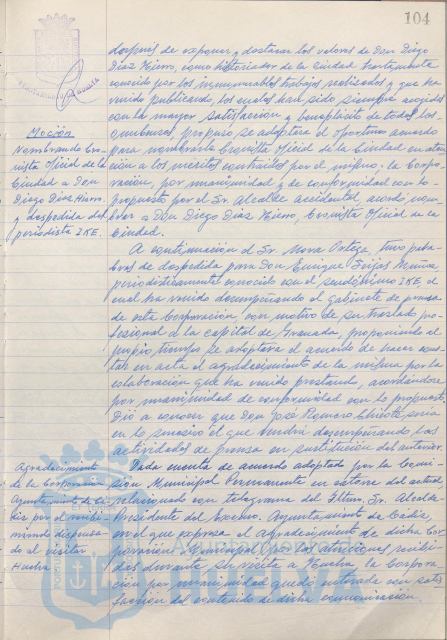 104
después de exponer y destacar los valores de Don Diego
Díaz Hierro, como historiador de la Ciudad
conocido por los innumerables trabajos realizados y que ha
venido publicando, los cuales han sido siempre acogidos
con la mayor satisfacción y beneplácito de todos los
onubenses, propuso se adoptara el oportuno acuerdo
para nombrarle Cronista Oficial de la Ciudad en aten
ción a los méritos contraídos por el mismo. La Corpo
ración, por unanimidad y de conformidad con lo
propuesto por el Sr. Alcalde accidental, acordó nom
brar a Don Diego Díaz Hierro, Cronista Oficial de la
Ciudad.
Moción
Nombrando Cro
nista Oficial de la
Ciudad a Don
Diego Díaz Hierro
y despedida del
periodista IKE.
A continuación el Sr. Mora Ortega, tuvo pala
bras de despedida para Don Enrique Seijas Muñoz
periodísticamente conocido con el seudónimo IKE, el
cual ha venido desempeñando el gabinete de prensa
de esta Corporación, con motivo de su traslado pro
fesional a la capital de Granada, proponiendo al
propio tiempo se adoptara el acuerdo de hacer cons
tar en acta el agradecimiento de la misma por la
colaboración que ha venido prestando, acordándose
por unanimidad de conformidad con lo propuesto.
Dió a conocer que Don José Romero Chicote sería
en lo sucesivo el que vendrá desempeñando las
actividades de prensa en sustitución del anterior.
Agradecimiento
de la Corporación
Ayuntamiento de Cá
diz por el
dispensa
do al visitar
Huelva
Dada cuenta de acuerdo adoptado por la Comi
sión Municipal Permanente en catorce del actual
relacionado con telegrama del Iltmo. Sr. Alcalde
Presidente del Excmo. Ayuntamiento de Cádiz,
en el que expresa el agradecimiento de dicha Cor
poración Municipal por las atenciones recibi
das durante su visita a Huelva, la Corpora
ción por unanimidad quedó enterada con satis
facción del contenido de dicha comunicación.